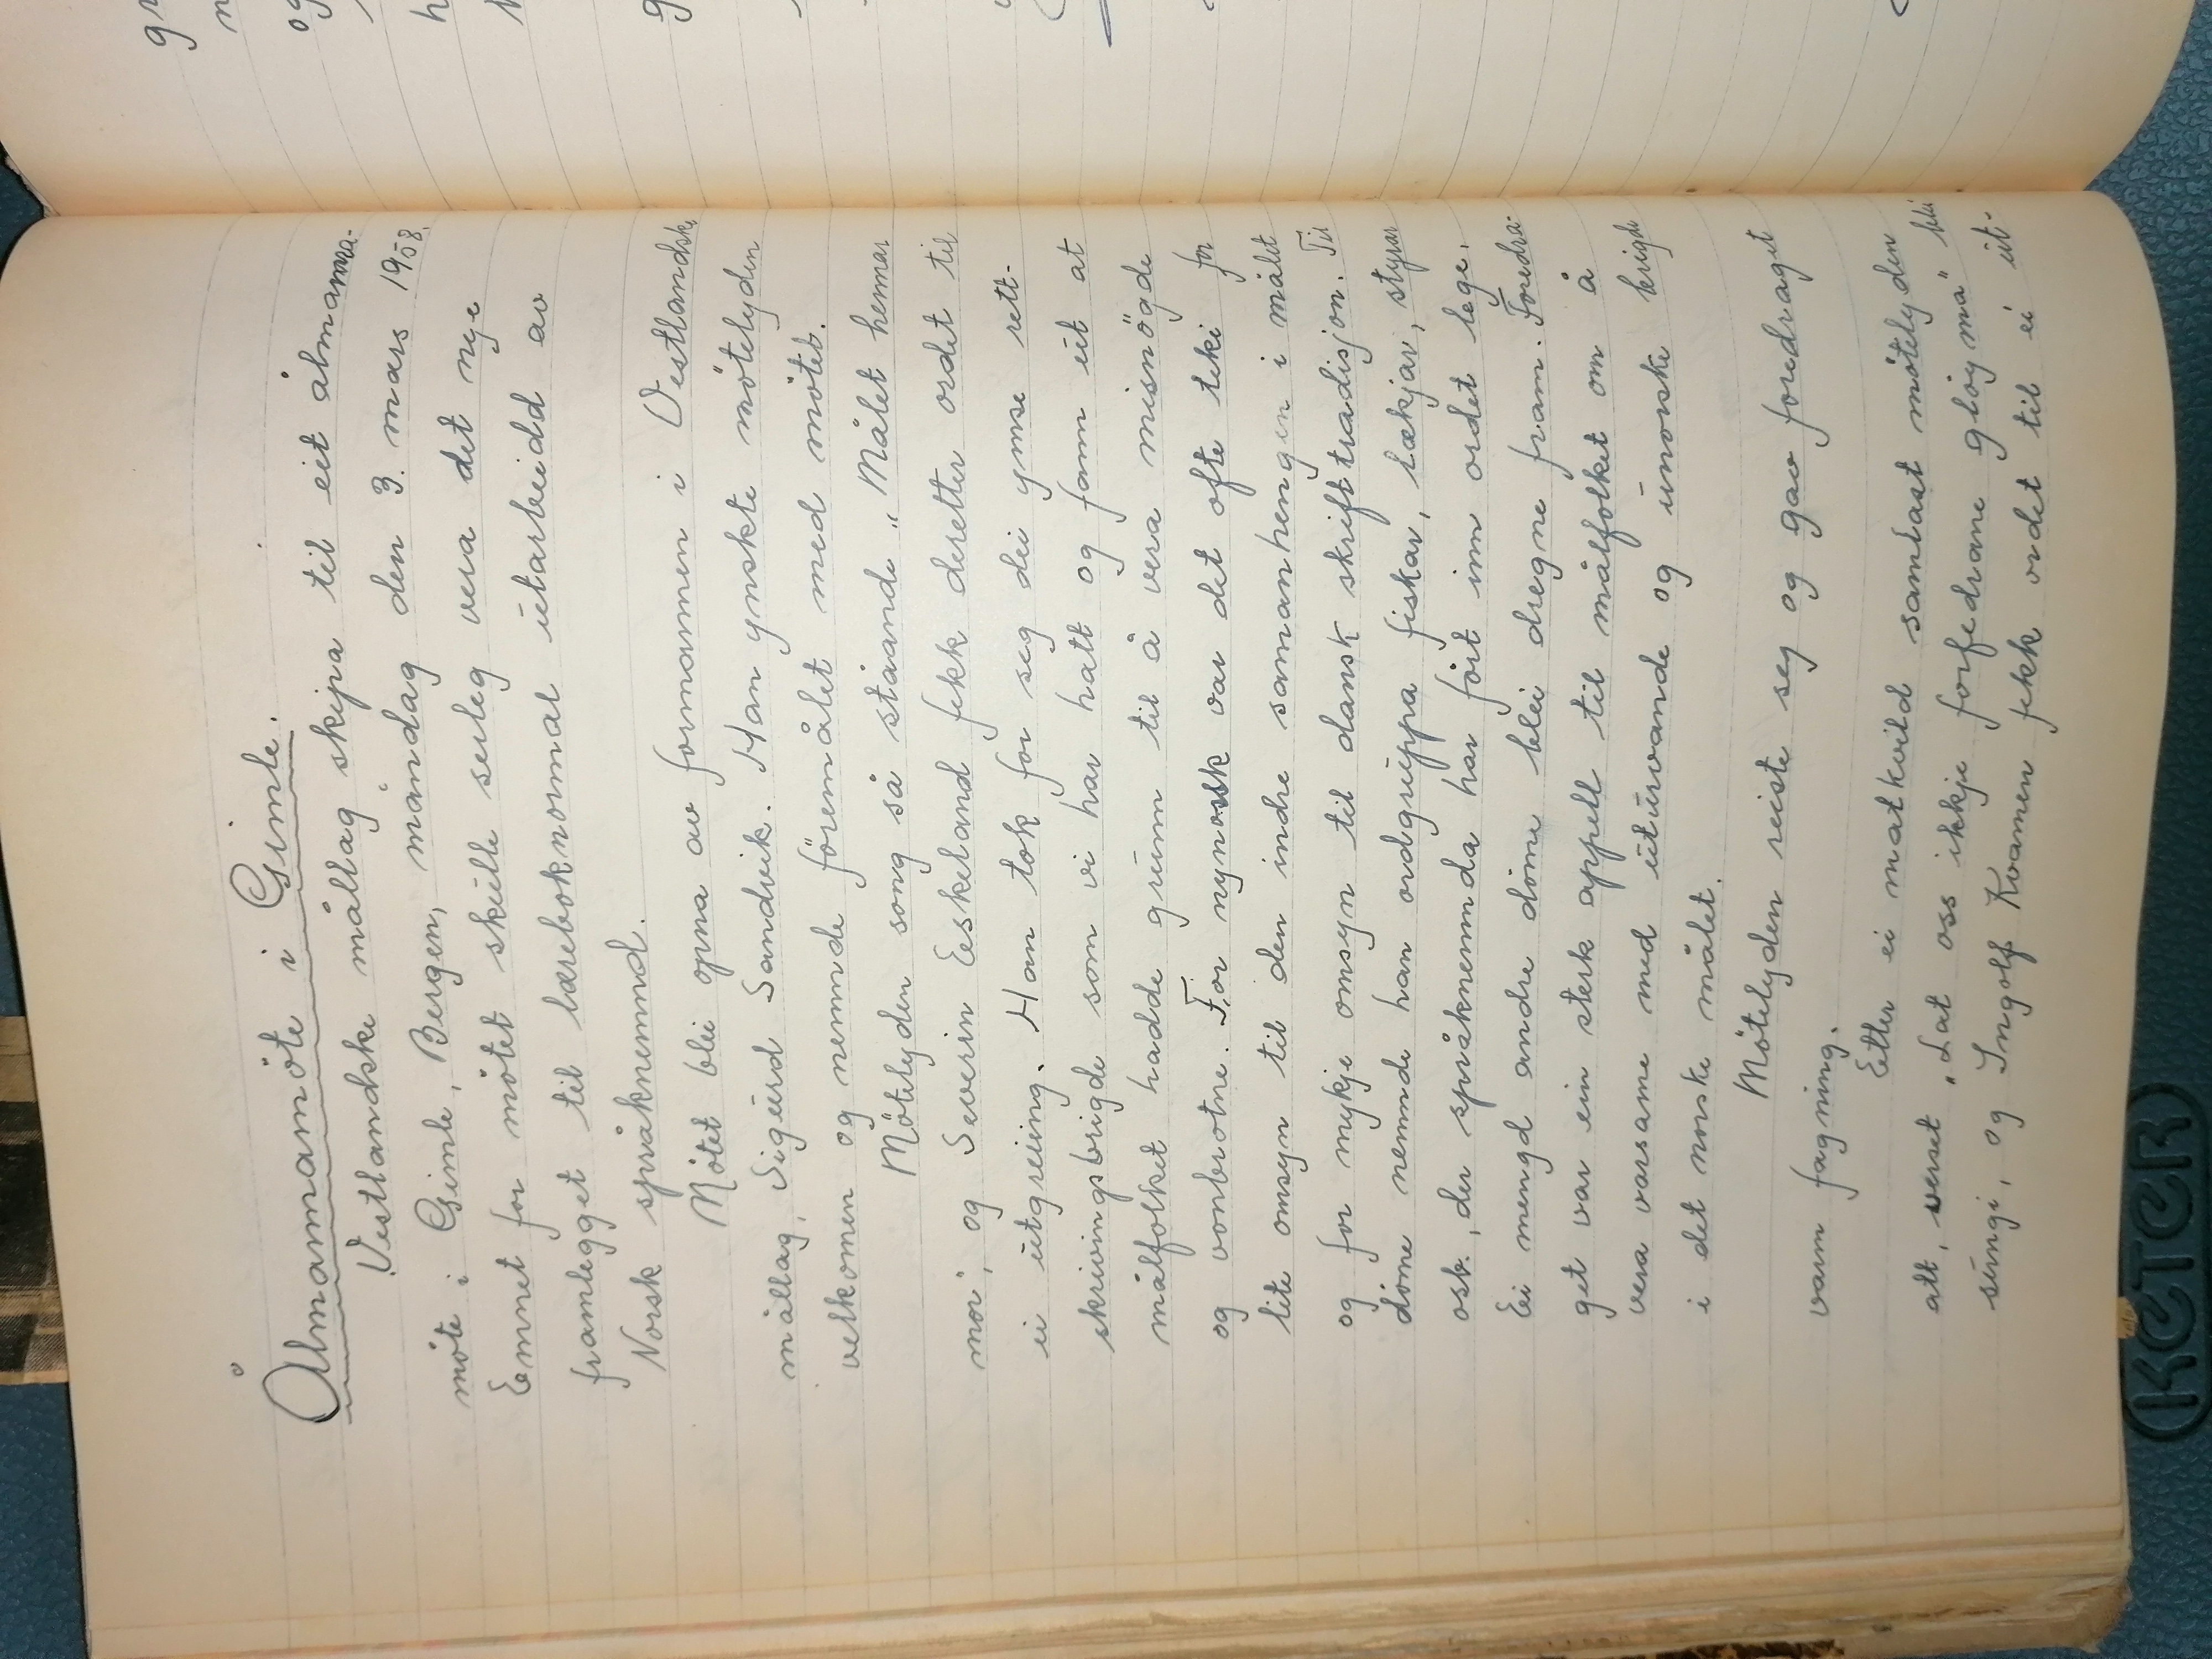 Ålmanamöte i Gimle.
Vestlandske mållag skipa til eit ålmanna-
möte i Gimle, Bergen, måndag den 3. mars 1958.
Emnet for mötet skulle serleg vera det nye
framlegget til læreboknormal utarbeidd av
Norsk språknemnd.
Mötet blei opna av formannen i Vestlandske
mållag, Sigurd Sandvik. Han ynskte mötelyden
velkomen og nemnde föremålet med mötet.
Mötelyden song så ståande „Målet hennar
mor", og Severin Eeskeland fekk deretter ordet til
ei utgreiing. Han tok for seg dei ymse rett-
skrivingsbrigde som vi har hatt og fann ut at
målfolket hadde grunn til å vera misnögde
og vonbrotne. For nynorsk var det ofte teki for
lite omsyn til den indre samanhengen i målet
og for mykje omsyn til dansk skrifttradisjon. Til
döme nemnde han ordgruppa fiskar, lækjar, styrar
osb., der språknemnda har fört inn ordet lege.
Ei mengd andre döme blei dregne fram. Foredra-
get var ein sterk appell til målfolket om å
vera varsame med utturvande og unorske brigde
i det norske målet.
Mötelyden reiste seg og gav foredraget
varm fagning.
Etter ei matkvild samlast mötelyden
att, verset „Lat oss ikkje forfedrane glöyma" blei
sungi, og Ingolf Kvamen fekk ordet til ei ut-
KETER